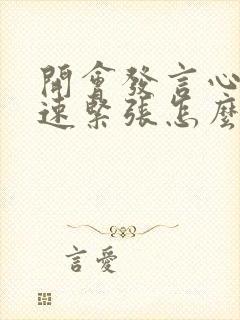 開會發言心
速緊張怎麼
言愛